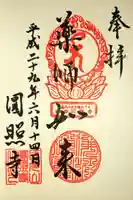 奉拝
薬師如来
平成二十九年六月十四日
圓照寺